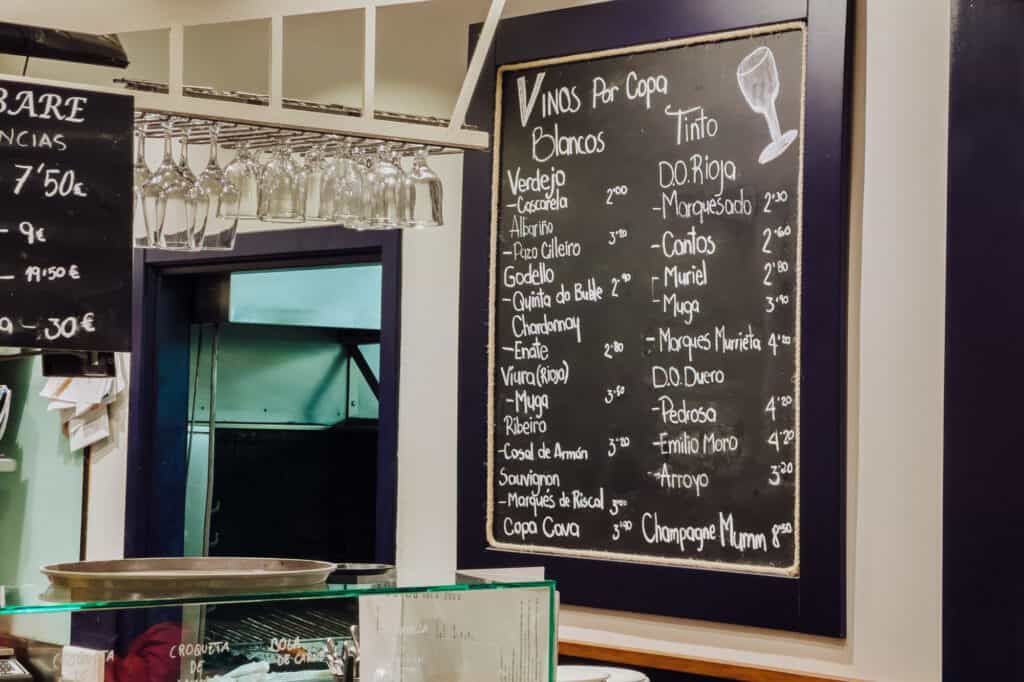 BARE
NCIAS
7'50€
- 9€
- 19'50€
a - 30€
Vinos Por Copa
Blancos
Verdejo
-Cascarela 2'00
Albariño
-Pazo Cilleiro
Godello
-Quinta do Buble 2'90
Chardonnay
-Enate 2'80
Viura (Rioja)
-Muga
Ribeiro
-Casal de Armán 3'20
Sauvignon
-Marqués de Riscal
Copa Cava 3'90
Tinto
D.O. Rioja
-Marquesado 2'30
-Cantos 2'60
-Muriel 2'80
-Muga 3'90
-Marques Murrieta 4'20
D.O. Duero
-Pedrosa 4'20
-Emilio Moro 4'20
-Arroyo 3'20
Champagne Mumm 8'50
CROQUETA
DE
BOLA
DE CARNE
CROQUETA